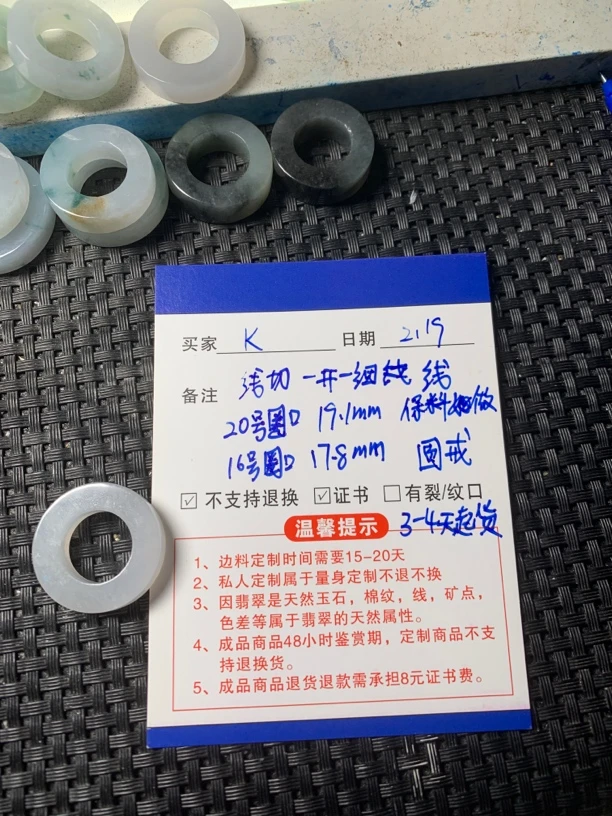 买家 K 日期 2.19
备注 切一开一细 线
20号圈口 19.1mm 保料 做
16号圈口 17.8mm 圆戒
☑ 不支持退换 ☑证书 □有裂/纹口
温馨提示 3-4天起货
1、边料定制时间需要15-20天
2、私人定制属于量身定制不退不换
3、因翡翠是天然玉石，棉纹，线，矿点，
色差等属于翡翠的天然属性。
4、成品商品48小时鉴赏期，定制商品不支
持退换货。
5、成品商品退货退款需承担8元证书费。